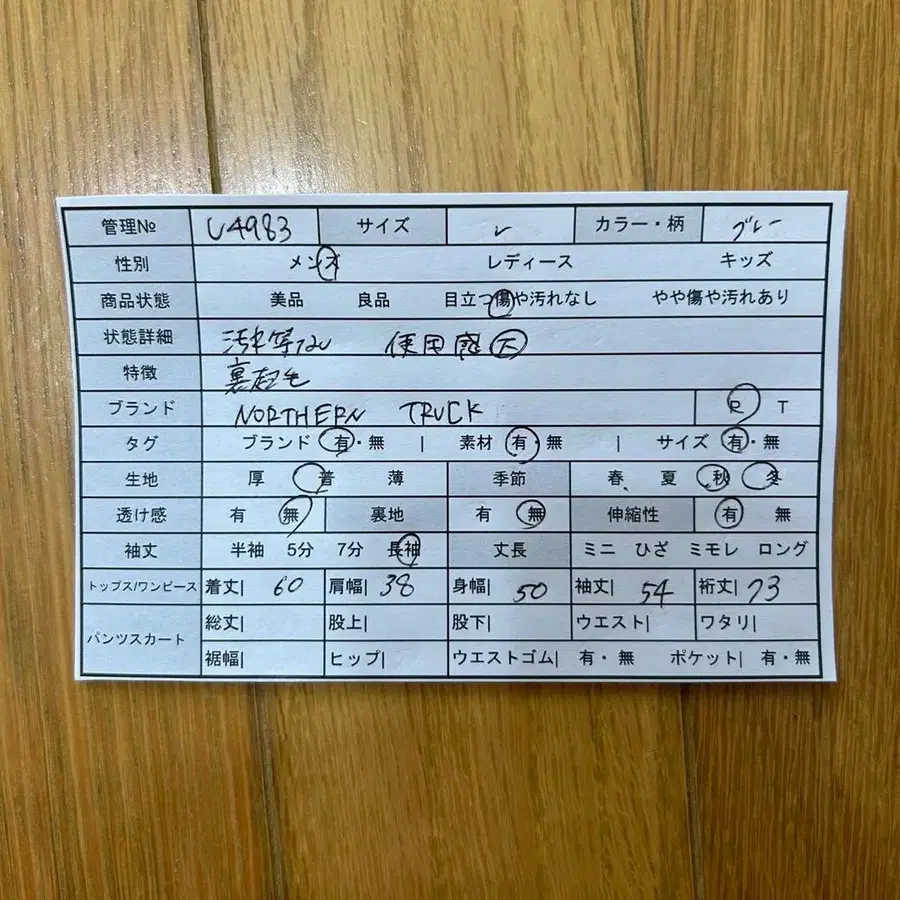 管理№ U4983 サイズ L カラー・柄 グレー
性別 メンズ レディース キッズ
商品状態 美品 良品 目立つ傷や汚れなし やや傷や汚れあり
状態詳細 汚れ等ない 使用感 大
特徴 裏起毛
ブランド NORTHERN TRUCK R T
タグ ブランド 有・無 | 素材 有・無 | サイズ 有・無
生地 厚 普 薄 季節 春、 夏 秋 冬
透け感 有 無 裏地 有 無 伸縮性 有 無
袖丈 半袖 5分 7分 長袖 丈長 ミニ ひざ ミモレ ロング
トップス/ワンピース 着丈| 60 肩幅| 38 身幅| 50 袖丈| 54 裄丈| 73
パンツスカート 総丈| 股上| 股下| ウエスト| ワタリ|
裾幅| ヒップ| ウエストゴム| 有・無 ポケット| 有・無